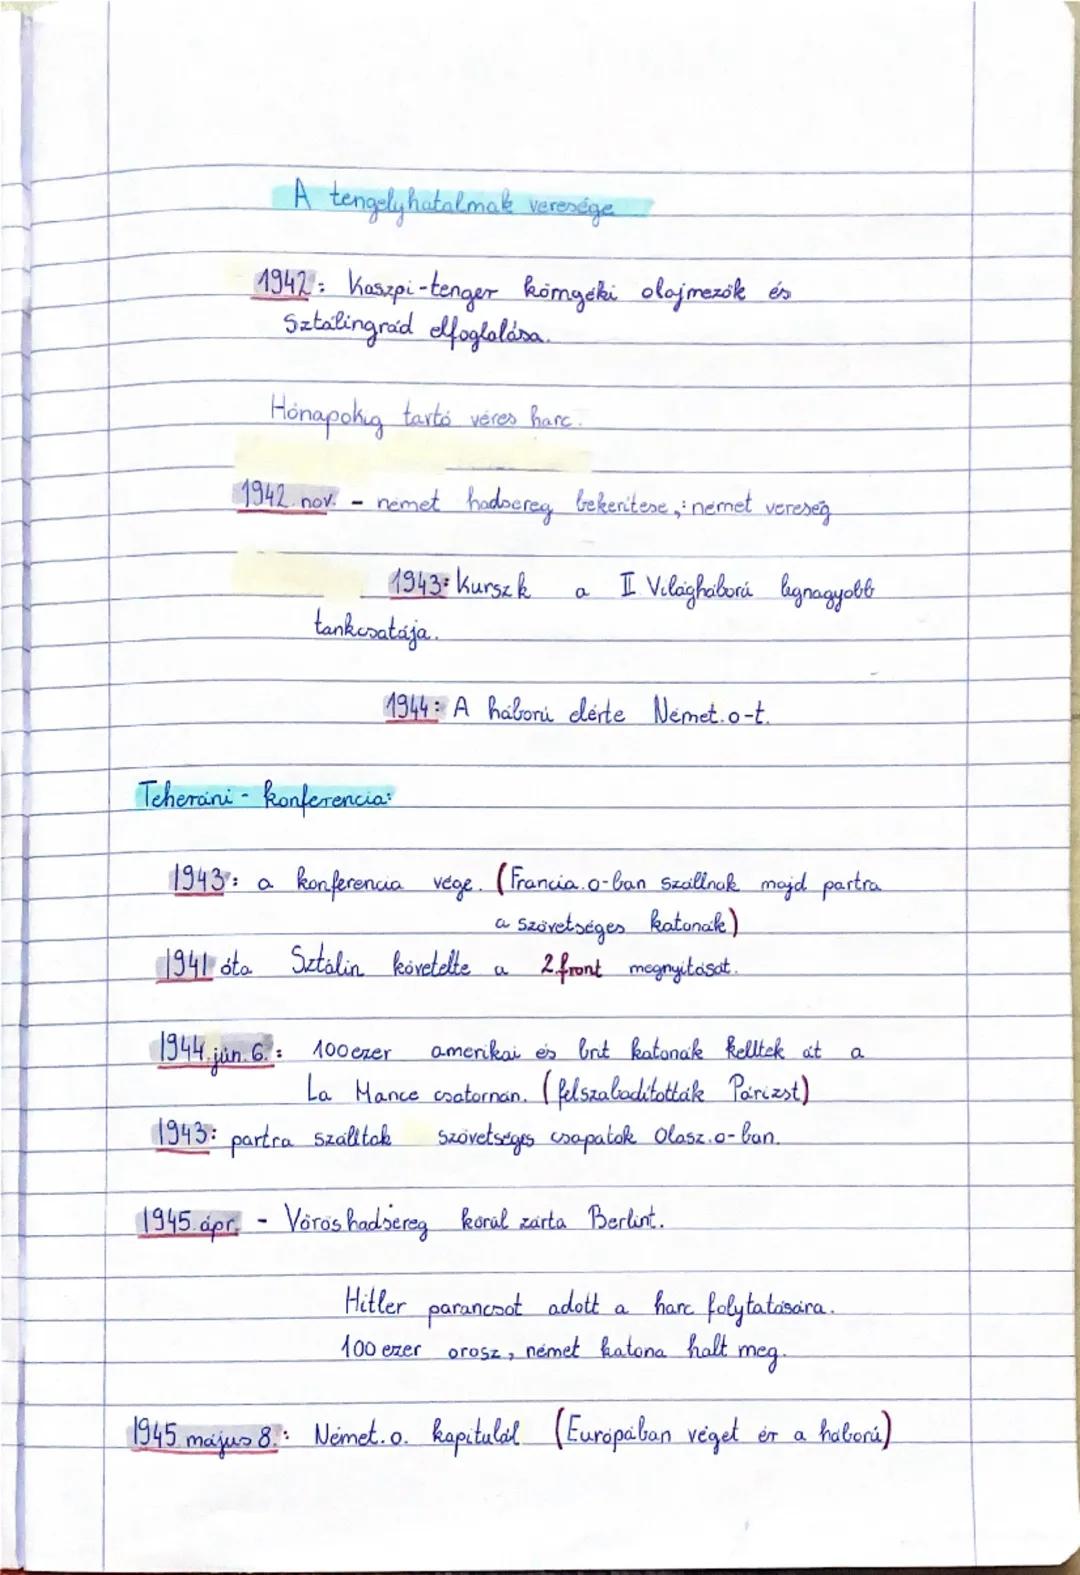 A tengelyhatalmak veresége
1942: Kaszpi-tenger környéki olajmezők és
Sztálingrád elfoglalása.
Hónapokig tartó véres harc.
1942. nov. - német hadsereg bekerítése, : német vereség
1943: Kurszk a II Világháború legnagyobb
tankcsatája.
1944: A háború elérte Német.o-t.
Teheráni - konferencia:
1943: a konferencia vége. (Francia.o-ban szállnak majd partra
a szövetséges katonák)
1941 óta Sztálin követelte a 2.front megnyitását.
1944. jún. 6.: 100 ezer amerikai és brit katonák kelltek át a
La Mance csatornán. (felszabadították Párizst)
1943: partra szálltak szövetséges csapatok Olasz.o-ban.
1945. ápr. - Vöröshadsereg körül zárta Berlint.
Hitler parancsot adott a harc folytatására.
100 ezer orosz, német katona halt meg.
1945 május 8.: Német.o. kapitulál (Európában véget ér a háború)